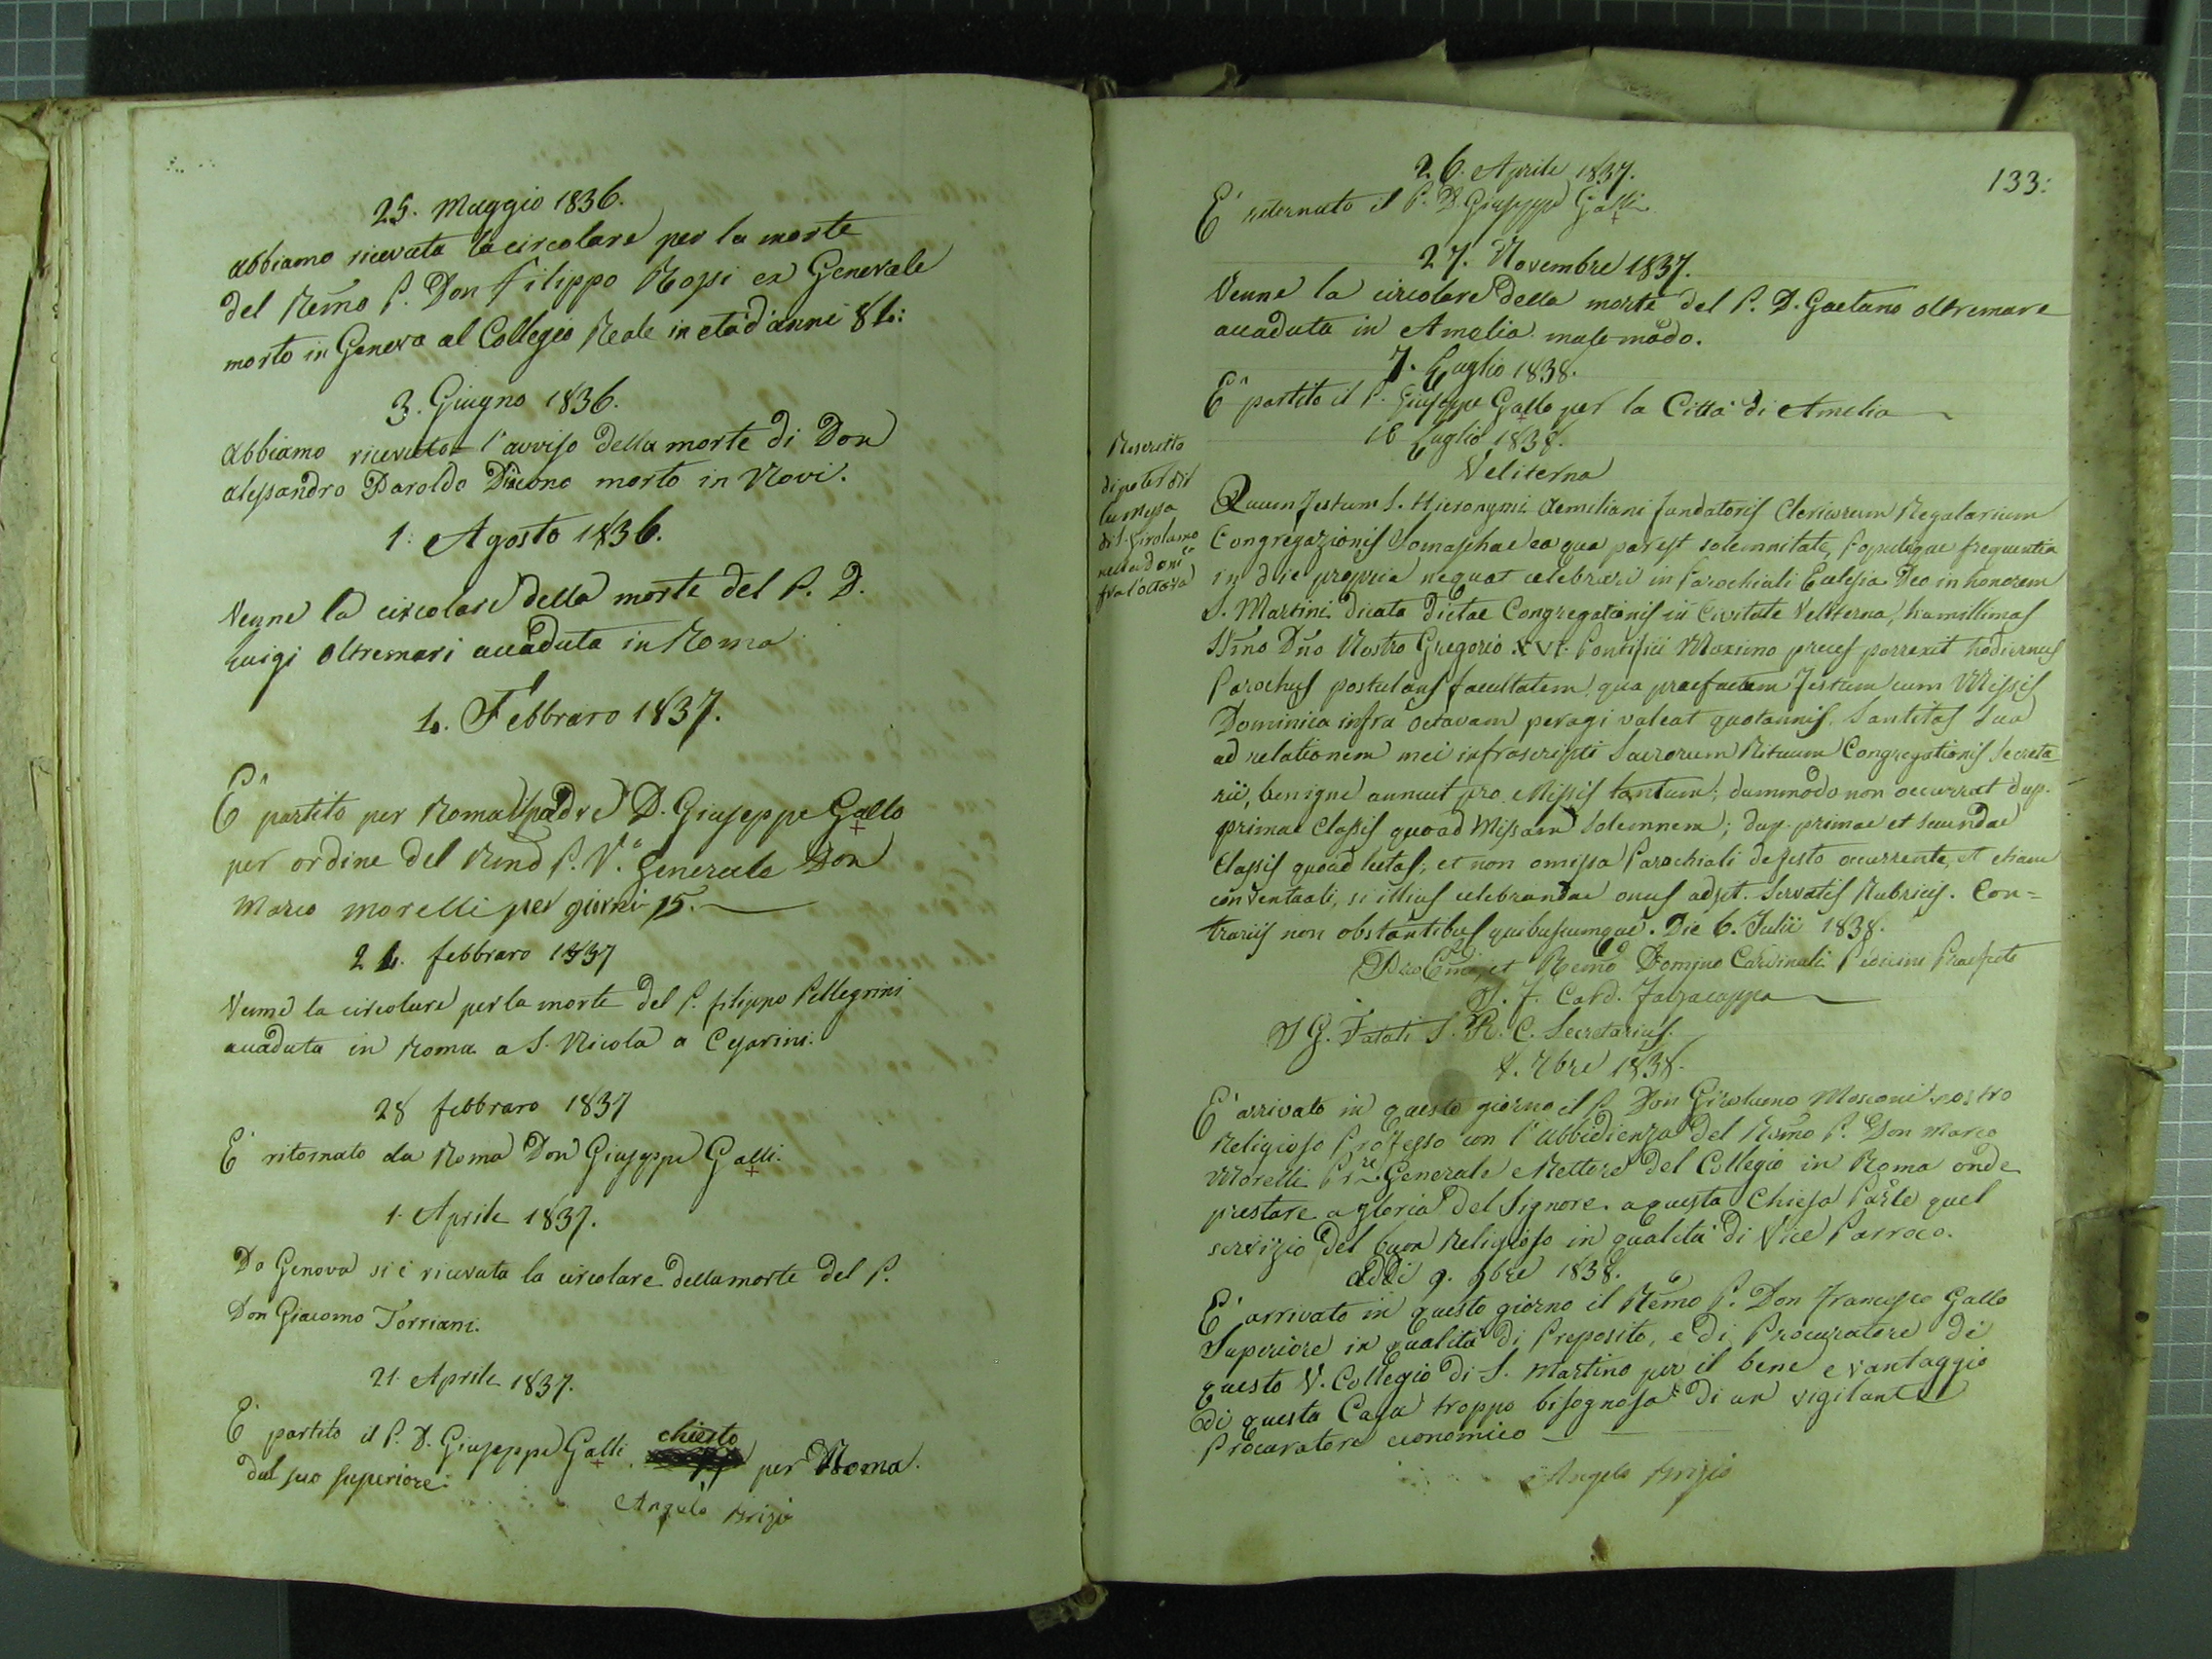 25. Maggio 1836.
Abbiamo ricevuta la circolare per la morte
del Remo P. Don Filippo Rossi ex Generale
morto in Genova al Collegio Reale in età d'anni 81:
3. Giugno 1836.
Abbiamo ricevuto l'avviso della morte di Don
Alessandro Paroldo Diacono morto in Novi.
1. Agosto 1836.
Venne la circolare della morte del P. D.
Luigi Oltremari accaduta in Roma
1. Febbraro 1837.
E' partito per Roma il padre D. Giuseppe Gallo
per ordine del Rmo P. V.o Generale Don
Marco Morelli per giorni 15.
21. febbraro 1837
Venne la circolare per la morte del P. filippo Pellegrini
accaduta in Roma a S. Nicola a Cesarini.
28 febbraro 1837
E' ritornato da Roma Don Giuseppe Galli.
1. Aprile 1837.
Da Genova si è ricevuta la circolare della morte del P.
Don Giacomo Torriani.
21. Aprile 1837.
E' partito il P. D. Giuseppe Galli chiesto per Roma.
dal suo superiore.
Angelo Brizio
133:
26. Aprile 1837.
E' ritornato il P. D. Giuseppe Galli
27. Novembre 1837.
Venne la circolare della morte del P. D. Gaetano Oltremare
accaduta in Amelia male modo.
7. Luglio 1838.
E' partito il P. Giuseppe Gallo per la Città di Amelia
18 Luglio 1838.
Rescritto
di poter dir
la Messa
di S. Girolamo
nella Domca
fra l'octava
Veliterna
Quum Festum S. Hieronymi Aemiliani fundatoris Clericorum Regularium
Congregazionis Somaschae ea qua par est solemnitate, Populique frequentia
in die propria nequat celebrari in Parochiali Ecclesia Deo in honorem
S. Martini dicata dictae Congregationis in Civitate Veliterna, humillimas
SSmo Dno Nostro Gregorio XVI. Pontifici Maximo preces porrexit hodiernus
Parochus postulans facultatem, qua praefatum Festum cum Missis
Dominica infra Octavam peragi valeat quotannis. Santitas Sua
ad relationem mei infrascripti Sacrorum Rituum Congregationis Secreta-
rii, benigne annuit pro Missis tantum; dummodo non occurrat dup.
primae Classis quoad Missam Solemnem; dup. primae et secundae
Classis quoad lectas; et non omissa Parochiali de festo occurrente, et etiam
conventuali, si illius celebrandae onus adsit. Servatis Rubricis. Con=
trariis non obstantibus quibuscumque. Die 6. Julii 1838.
Pro Emo et Remo Domino Cardinali Pedicini Praefecto
J. F. Card. Falzacappa
J G. Fatati S. R. C. Secretarius.
4. 7bre 1838.
E' arrivato in questo giorno il P. Don Girolamo Mosconi nostro
Religioso Professo con l'Ubbidienza del Rmo P. Don Marco
Morelli Pre Generale e Rettore del Collegio in Roma onde
prestare a gloria del Signore a questa Chiesa Parle quel
servizio del buon Religioso in qualità di Vice Parroco.
Addì 9. 9bre 1838.
E' arrivato in questo giorno il Remo P. Don Francesco Gallo
Superiore in qualità di Preposito, e di Procuratore di
questo V. Collegio di S. Martino per il bene e vantaggio
di questa Casa troppo bisognosa di un vigilante
Procuratore economico
Angelo Brizio